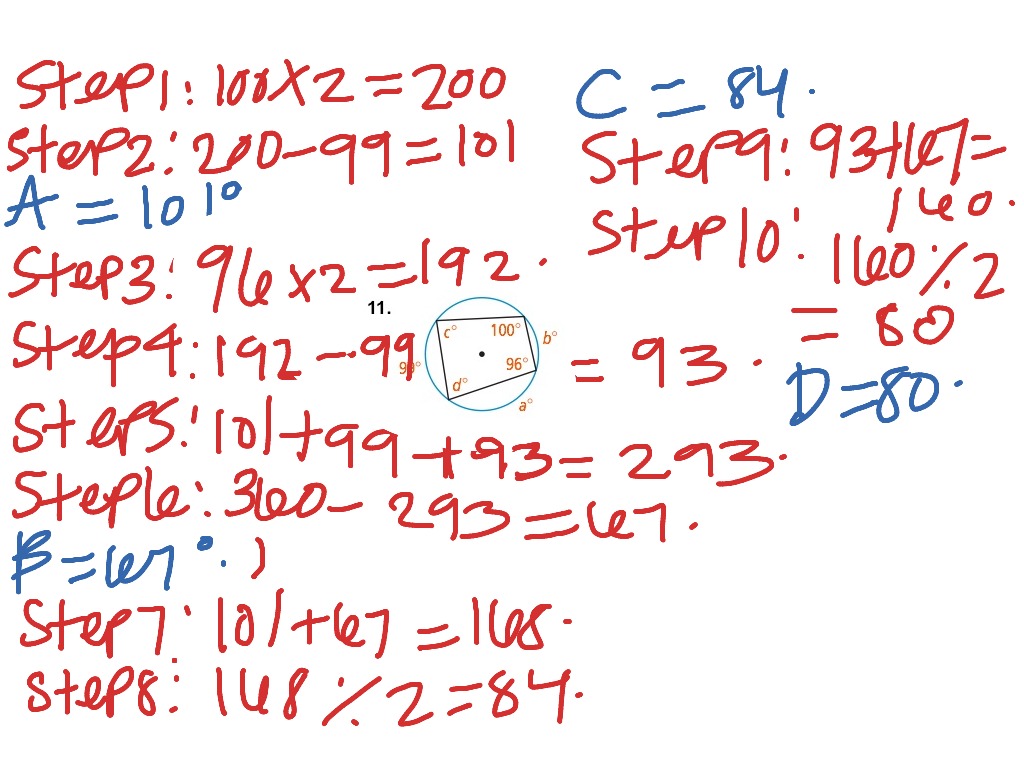 Step1: 100×2=200
Step2: 200-99=101
A = 101°
Step3: 96×2=192.
11.
c° 100° b°
96°
d°
a°
Step4: 192-99 = 93.
Step5: 101+99+93=293.
Step6: 360-293=67.
B=67°.)
Step7: 101+67=168.
Step8: 168 ٪ 2=84.
C = 84.
Step9: 93+67=
160.
Step10: 160 ٪ 2
= 80
D=80.